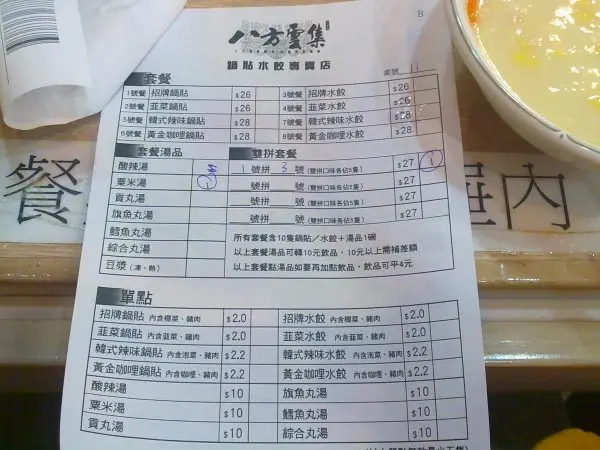 八方雲集
鍋貼水餃專賣店
B
桌號 11
套餐
1號餐 招牌鍋貼 $26 3號餐 招牌水餃 $26
2號餐 韮菜鍋貼 $26 4號餐 韮菜水餃 $26
5號餐 韓式辣味鍋貼 $28 7號餐 韓式辣味水餃 $28
6號餐 黃金咖哩鍋貼 $28 8號餐 黃金咖哩水餃 $28
套餐湯品 雙拼套餐
酸辣湯 1 號拼 3 號 (雙拼口味各佔5隻) $27 1
粟米湯 1 號拼 號 (雙拼口味各佔5隻) $27
貢丸湯 號拼 號 (雙拼口味各佔5隻) $27
旗魚丸湯 號拼 號 (雙拼口味各佔5隻) $27
鱈魚丸湯
綜合丸湯
豆漿 (凍、熱)
所有套餐含10隻鍋貼/水餃+湯品1碗
以上套餐湯品可轉10元飲品,10元以上需補差額
以上套餐點湯品如要再加點飲品,飲品可平4元
單點
招牌鍋貼 內含椰菜、豬肉 $2.0 招牌水餃 內含椰菜、豬肉 $2.0
韮菜鍋貼 內含韮菜、豬肉 $2.0 韮菜水餃 內含韮菜、豬肉 $2.0
韓式辣味鍋貼 內含泡菜、豬肉 $2.2 韓式辣味水餃 內含泡菜、豬肉 $2.2
黃金咖哩鍋貼 內含咖哩、豬肉 $2.2 黃金咖哩水餃 內含咖哩、豬肉 $2.2
酸辣湯 $10 旗魚丸湯 $10
粟米湯 $10 鱈魚丸湯 $10
貢丸湯 $10 綜合丸湯 $10
餐
內